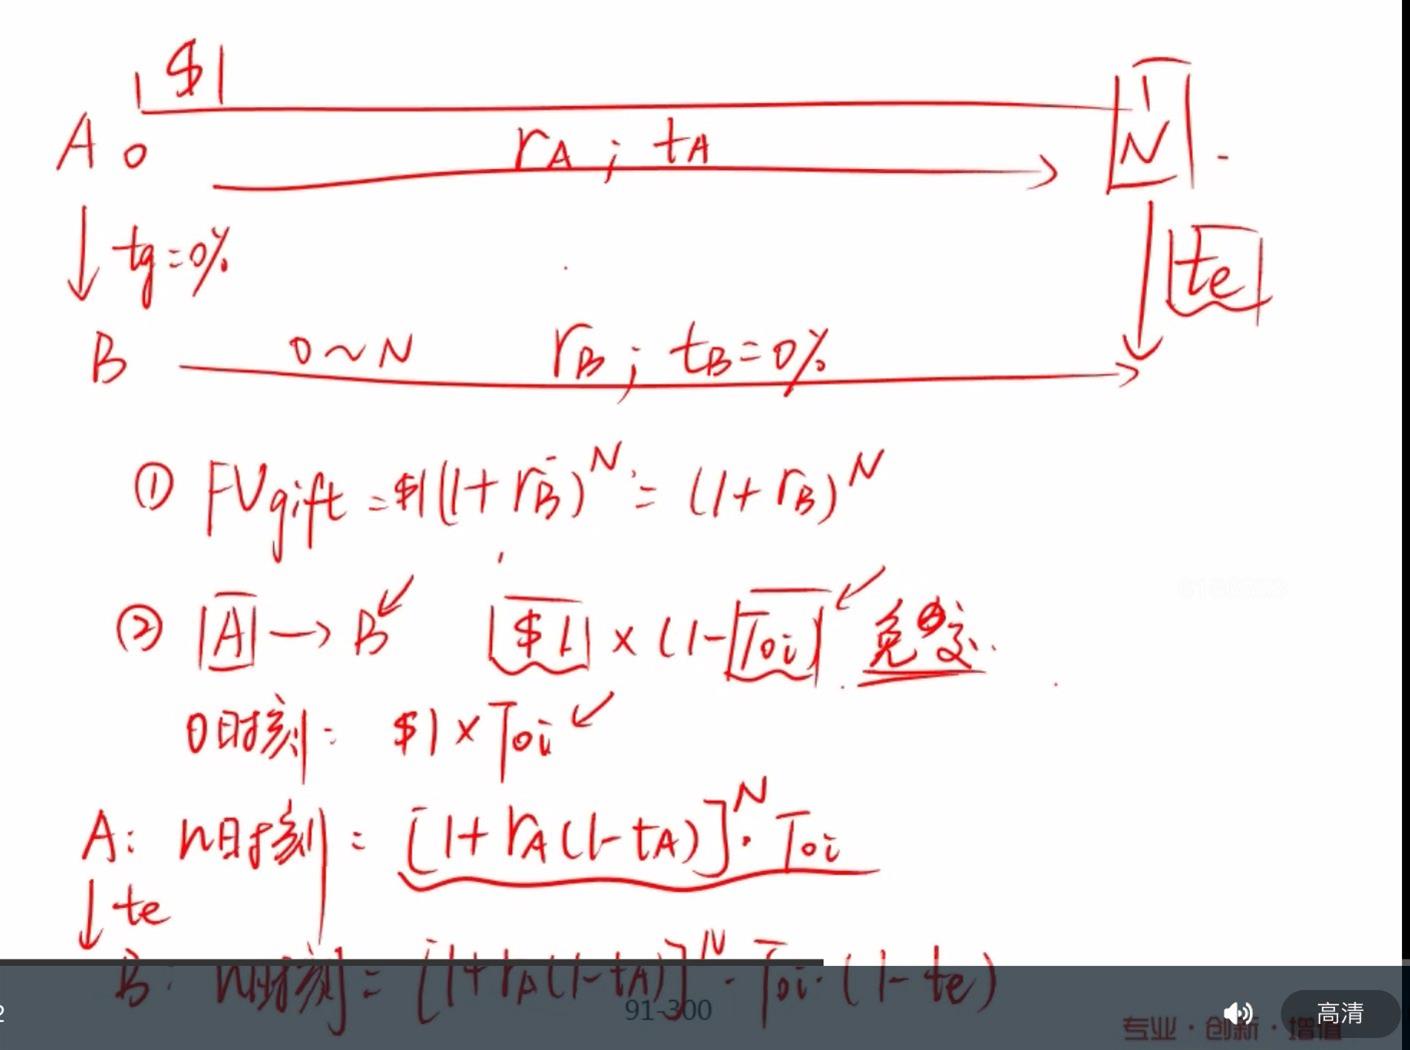 $1
A 0 rA ; tA N
↓ tg=0% ↓ te
B 0~N rB ; tB=0%
① FVgift = $1(1+rB)^N = (1+rB)^N
② A → B $1 × (1-Toi)
0时刻: $1×Toi
A: n时刻 = [1+rA(1-tA)]^N · Toi
↓ te
B: n时刻 = [1+rA(1-tA)]^N · Toi · (1-te)
91-300
高清
专业·创新·增值